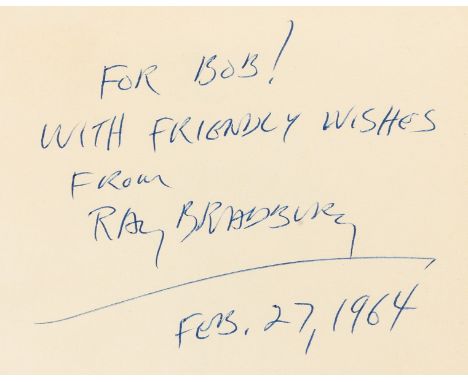 FOR BOB!
WITH FRIENDLY WISHES
FROM
RAY BRADBURY
FEB. 27, 1964